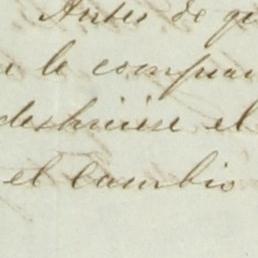 Antes de qu
le compra
deshiciese el
el cambio